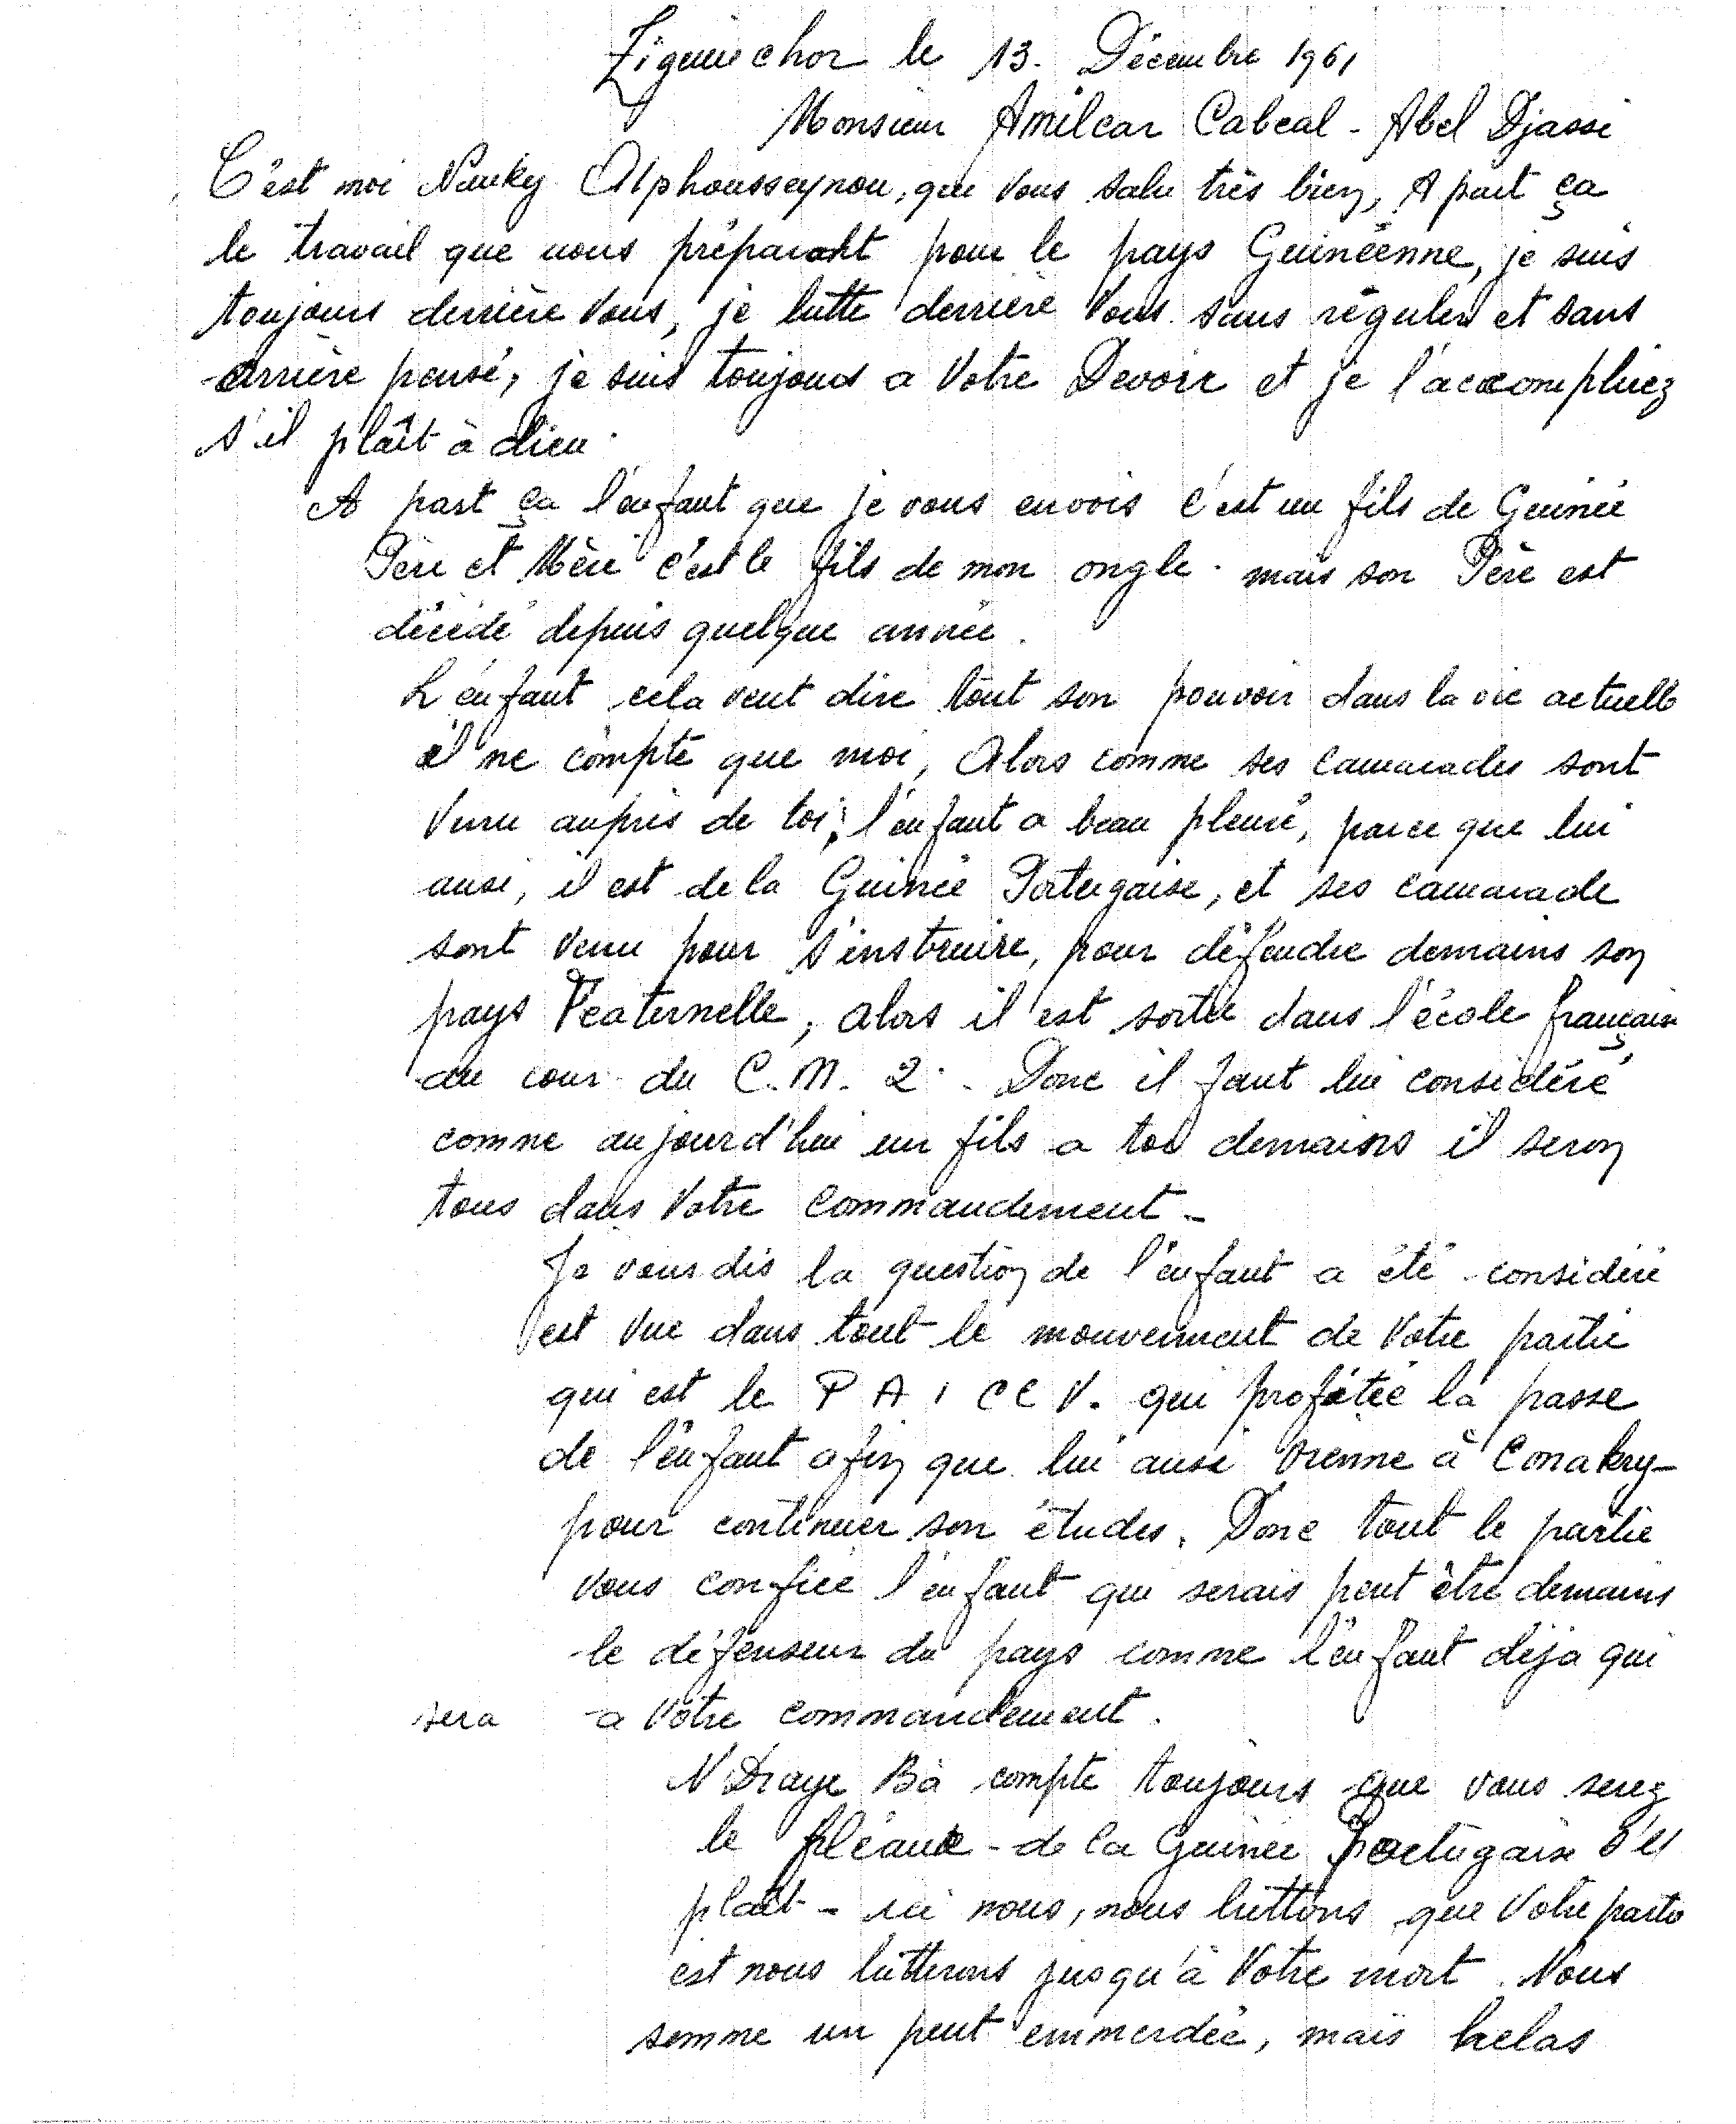 Ziguinchor le 13. Décembre 1961
Monsieur Amilcar Cabral - Abel Djassi
C'est moi Nanky Alphousseynou, que vous salu très bien, A part ça
le travail que nous préparait pour le pays Guinéenne, je suis
toujours derrière vous, je lutte derrière vous sans réguler et sans
arrière pensé, je suis toujous a votre Devoir et je l'accompliez
s'il plaît à dieu.
A part ça l'enfant que je vous envois c'est un fils de Guinée
Père et Mère c'est le fils de mon ongle. mais son Père est
décédé depuis quelque année.
L'enfant cela veut dire tout son pouvoir dans la vie actuelle
il ne compte que moi, Alors comme ses camarades sont
venu auprès de toi, l'enfant a beau pleuré, parce que lui
ausi, il est de la Guinée Portugaise, et ses camarade
sont venu pour s'instruire, pour défendre demains son
pays Fraternelle, alors il est sortie dans l'école française
au cour du C.M. 2. - Donc il faut lui considéré
comme aujourd'hui un fils a toi demains il seron
tous dans votre commandement -
Je vous dis la question de l'enfant a été considéré
est vue dans tout le mouvement de votre partie
qui est le P A I C C V. qui profitée la passe
de l'enfant afin que lui ausi vienne à Conakry -
pour continuer son études. Donc tout le partie
vous confiée l'enfant qui serais peut être demains
le défenseur du pays comme l'enfant déja qui
sera a votre commandement.
N'Draye Bà compte toujours que vous serez
le fléaux - de la Guinée Portugaise S'il
plait - ici nous, nous luttons que votre parto
est nous lutterons jusqu'à votre mort. Nous
somme un peut emmerdée, mais helas